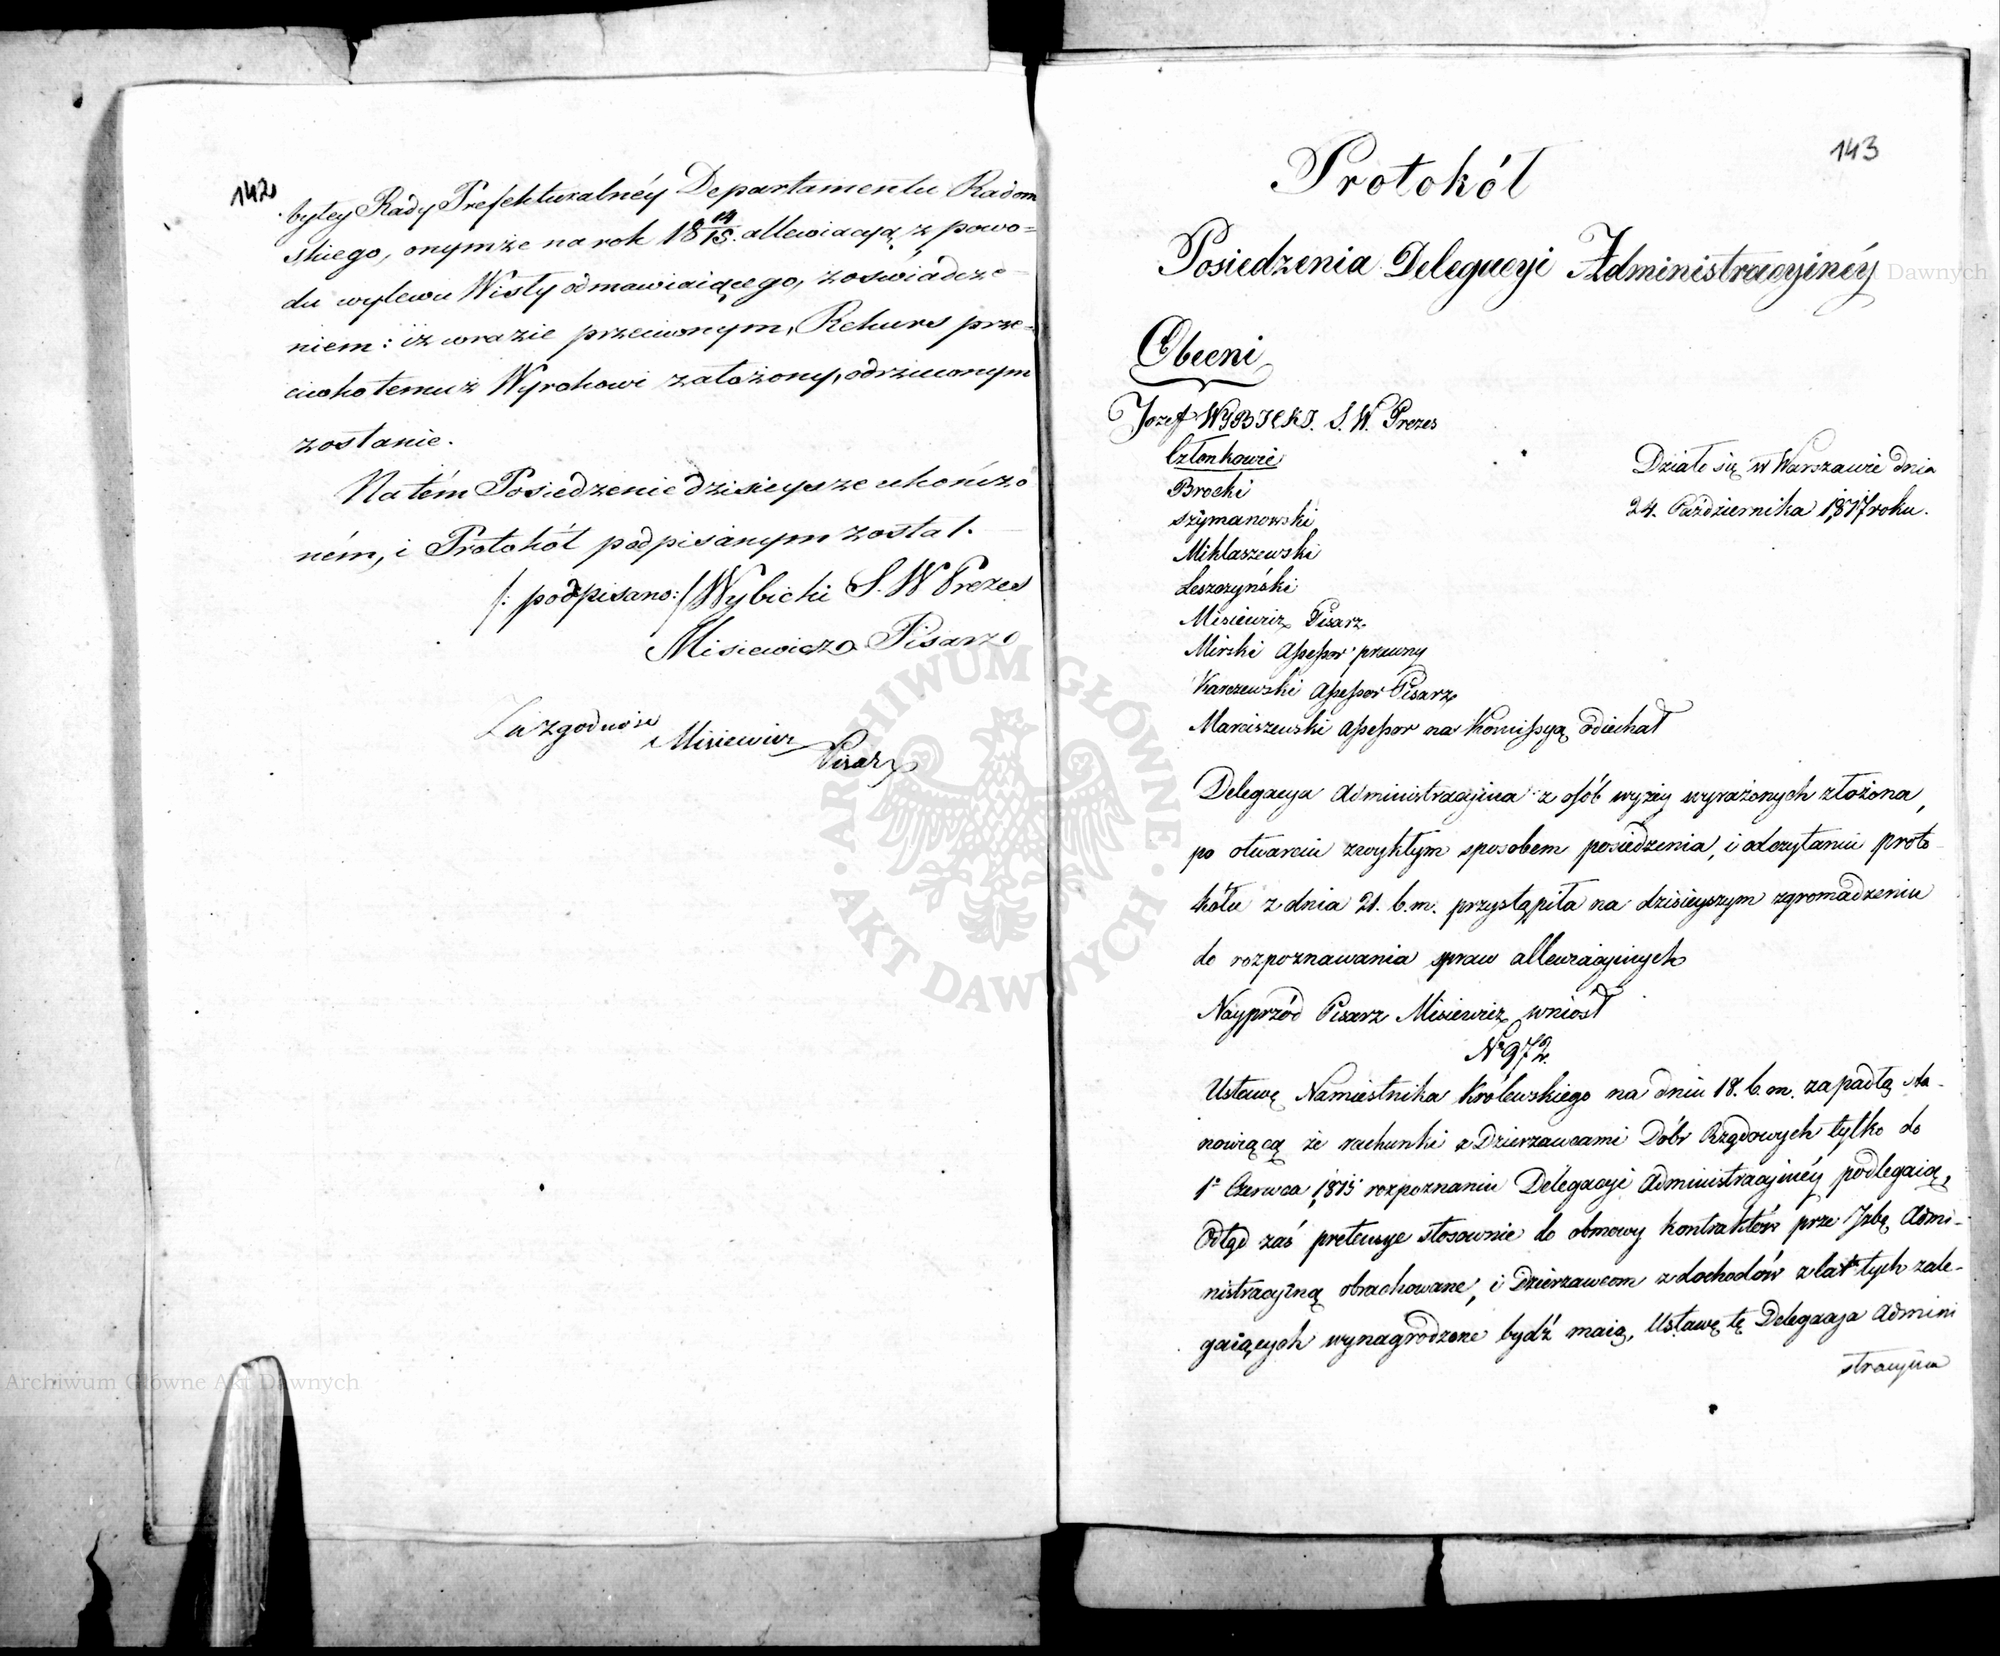 142
byłey Rady Prefekturalnéy Departamentu Radom
skiego, onymże na rok 18 14/15. allewiacyą z powo=
du wylewu Wisły odmawiaiącego, z oświadcze
niem: iż w razie przeciwnym, Rekurs prze=
ciwko temuż Wyrokowi założony, odrzuconym
zostanie.
Na tém Posiedzenie dzisieysze ukończo
ném, i Protokół podpisanym został.
/: podpisano: / Wybicki S. W Prezes
Misiewicz Pisarz
Za zgodność
Misiewicz
Pisarz
143
Protokół
Posiedzenia Delegacyi Administracyinéy
Obecni
Jozef Wybicki. S. W. Prezes
Członkowie
Działo się w Warszawie dnia
24. Października 1817 roku.
Brocki
Szymanowski
Miklaszewski
Leszczyński
Misiewicz Pisarz
Mirski Assessor prawny
Karczewski Assessor Pisarz
Marciszewski Assessor na Kommissyą odiechał
Delegacya Administracyina z osób wyżey wyrażonych złożona,
po otwarciu zwykłym sposobem posiedzenia, i odczytaniu proto
kółu z dnia 21. b. m. przystąpiła na dzisieyszym zgromadzeniu
do rozpoznawania spraw allewiacyinych
Nayprzód Pisarz Misiewicz wniosł
Nº 972.
Ustawę Namiestnika Królewskiego na dniu 18. b. m. zapadłą sta-
nowiącą że rachunki z Dzierzawcami Dóbr Rządowych tylko do
1º Czerwca 1815 rozpoznaniu Delegacyi Administracyinéy podlegaią,
Odtąd zaś pretensye stosownie do obmowy kontraktów prze Izbę Admi-
nistracyiną obrachowane, i Dzierzawcom z dochodów z lat tych zale-
gaiących wynagrodzone bydź maią. Ustawę tę Delegacya Admini
stracyina
Archiwum Główne Akt Dawnych
ARCHIWUM GŁÓWNE AKT DAWNYCH
Dawnych